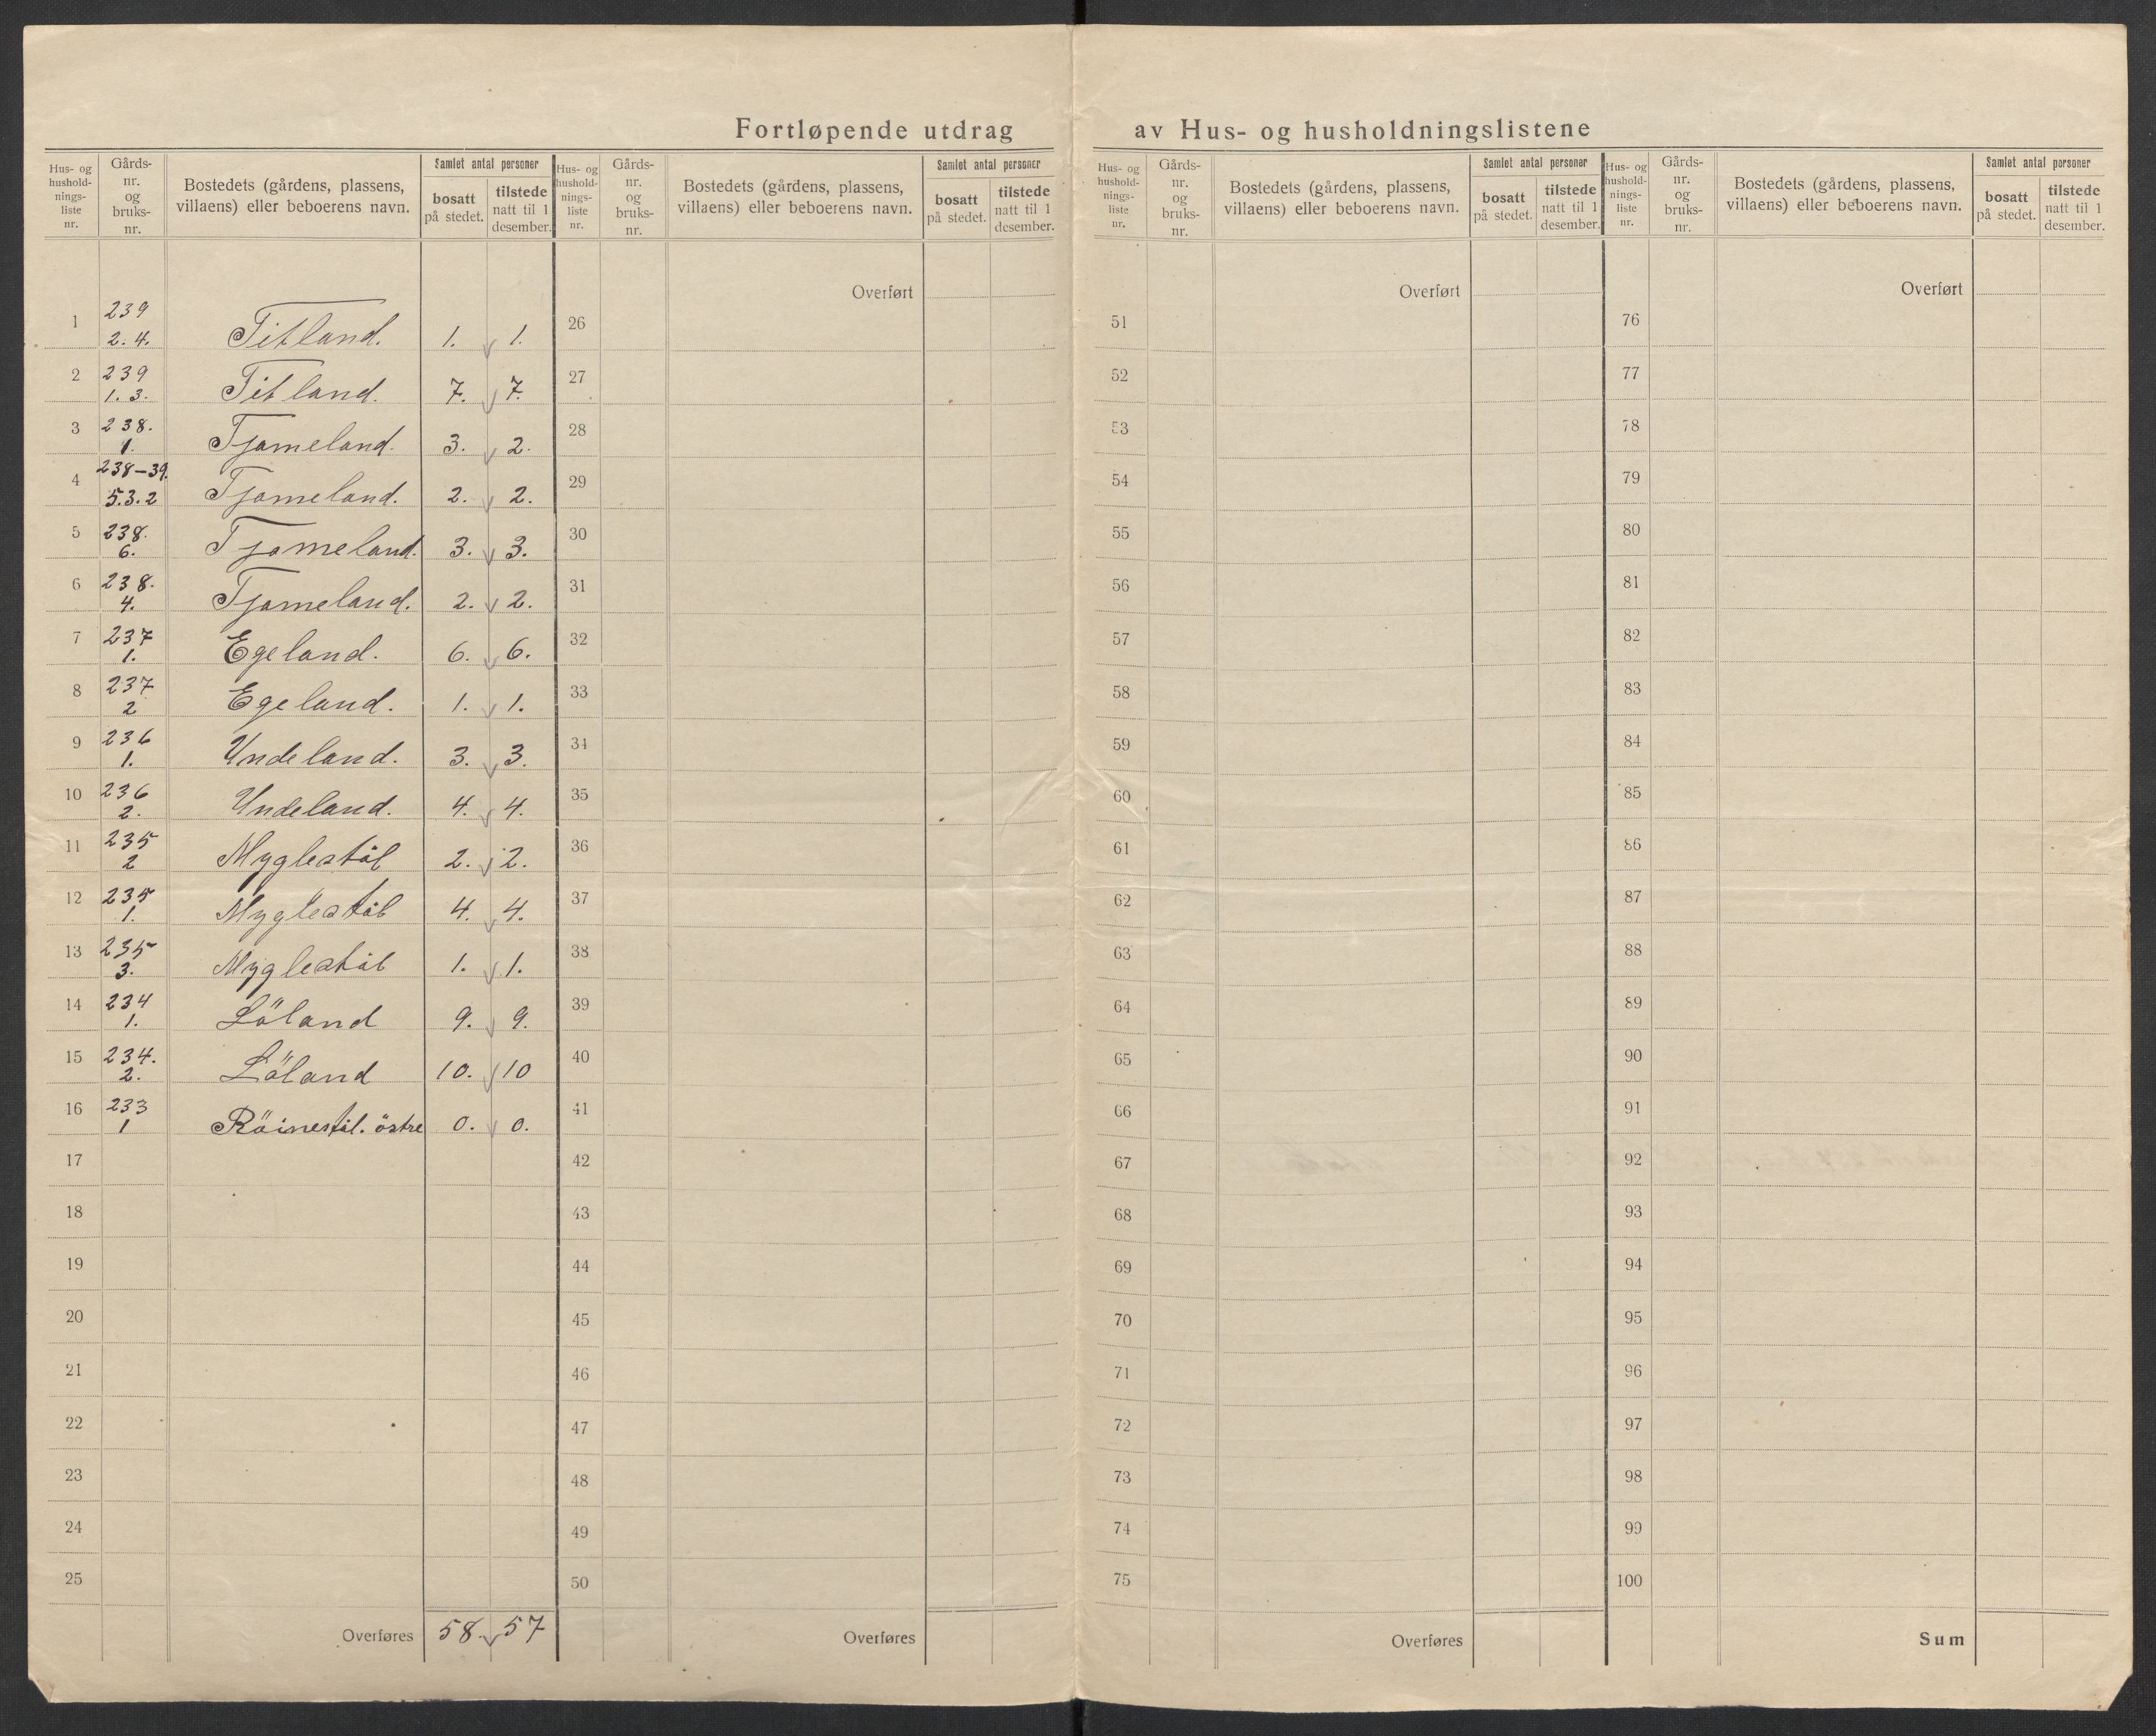 Fortløpende utdrag av Hus- og husholdningslistene
Hus- og hushold- nings- liste nr. Gårds- nr. og bruks- nr. Bostedets (gårdens, plassens, villaens) eller beboerens navn. Samlet antal personer bosatt på stedet. tilstede natt til 1 desember.
1 239 2. 4. Titland. 1. 1.
2 239 1. 3. Titland. 7. 7.
3 238. 1. Tjomeland. 3. 2.
4 238-39. 5.3.2 Tjomeland. 2. 2.
5 238. 6. Tjomeland. 3. 3.
6 238. 4. Tjomeland. 2. 2.
7 237 1. Egeland. 6. 6.
8 237 2 Egeland. 1. 1.
9 236 1. Undeland. 3. 3.
10 236 2. Undeland. 4. 4.
11 235 2 Myglestöl 2. 2.
12 235 1. Myglestöl 4. 4.
13 235 3. Myglestöl 1. 1.
14 234 1. Löland 9. 9.
15 234. 2. Löland 10. 10
16 233 1 Röinestöl. östre 0. 0.
17
18
19
20
21
22
23
24
25
Overføres 58. 57
Hus- og hushold- nings- liste nr. Gårds- nr. og bruks- nr. Bostedets (gårdens, plassens, villaens) eller beboerens navn. Samlet antal personer bosatt på stedet. tilstede natt til 1 desember.
Overført
26
27
28
29
30
31
32
33
34
35
36
37
38
39
40
41
42
43
44
45
46
47
48
49
50
Overføres
Hus- og hushold- nings- liste nr. Gårds- nr. og bruks- nr. Bostedets (gårdens, plassens, villaens) eller beboerens navn. Samlet antal personer bosatt på stedet. tilstede natt til 1 desember.
Overført
51
52
53
54
55
56
57
58
59
60
61
62
63
64
65
66
67
68
69
70
71
72
73
74
75
Overføres
Hus- og hushold- nings- liste nr. Gårds- nr. og bruks- nr. Bostedets (gårdens, plassens, villaens) eller beboerens navn. Samlet antal personer bosatt på stedet. tilstede natt til 1 desember.
Overført
76
77
78
79
80
81
82
83
84
85
86
87
88
89
90
91
92
93
94
95
96
97
98
99
100
Sum